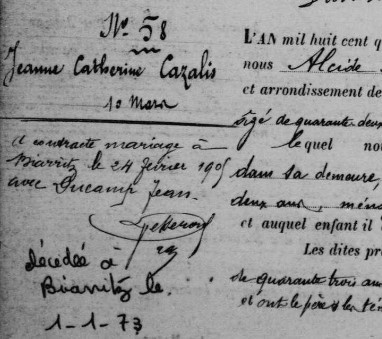 N° 58
Jeanne Catherine Cazalis
10 Mars
a contracté mariage à
Biarritz le 24 février 190
avec Ducamp Jean.
décédée à
Biarritz le
1-1-73
L'AN mil huit cent q
nous Alcide
et arrondissement de
âgé de quarante deux
lequel no
dans sa demeure,
deux ans, ména
et auquel enfant il
Les dites pr
de quarante trois an
et ont le père & les té